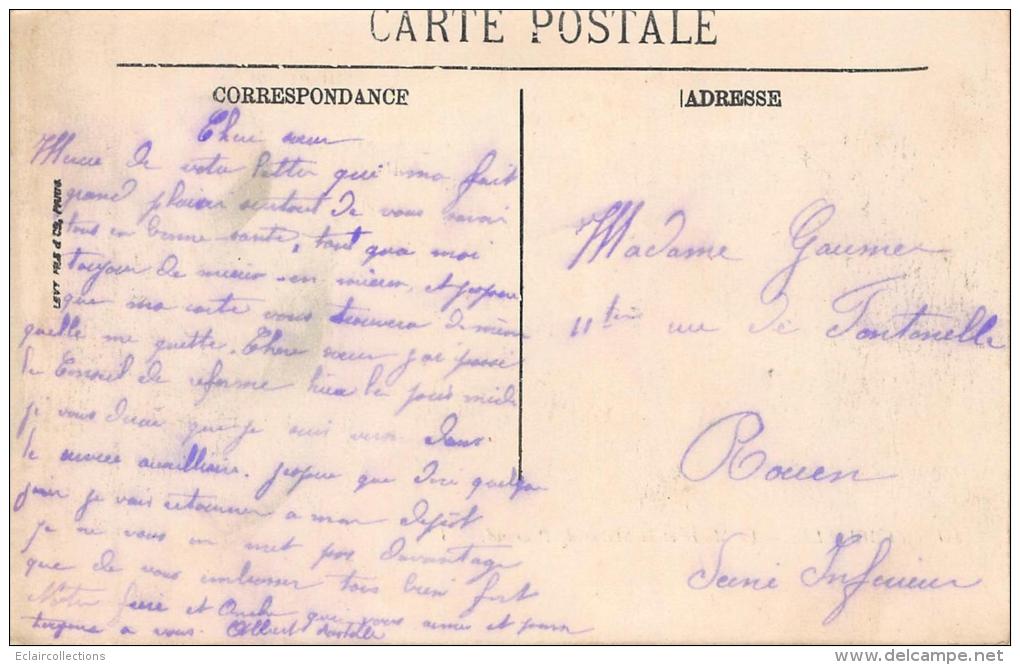 CARTE POSTALE
CORRESPONDANCE
ADRESSE
Chere sœur
de votre lettre qui ma fait
grand plaisir surtout de vous savoir
tous en bonne santé, tant qua moi
toujour de mieux en mieux, et jespere
que ma carte vous trouvera de même
quelle me quitte. Chere sœur j'ai passé
le Conseil de reforme hier
je vous dirai que je suis versé dans
le service auxilliaire. jespere que dici quelque
jour je vais retourner a mon depôt
je ne vous en met pas davantage
que de vous embrasser tous bien fort
Votre frère et Oncle qui vous aime et pense
toujours a vous. Albert
Madame Gaumer
11 ter rue de Fontenelle
Rouen
Seine Inferieur
LEVY FILS & Cie, PARIS
Eclaircollections
delcampe.net